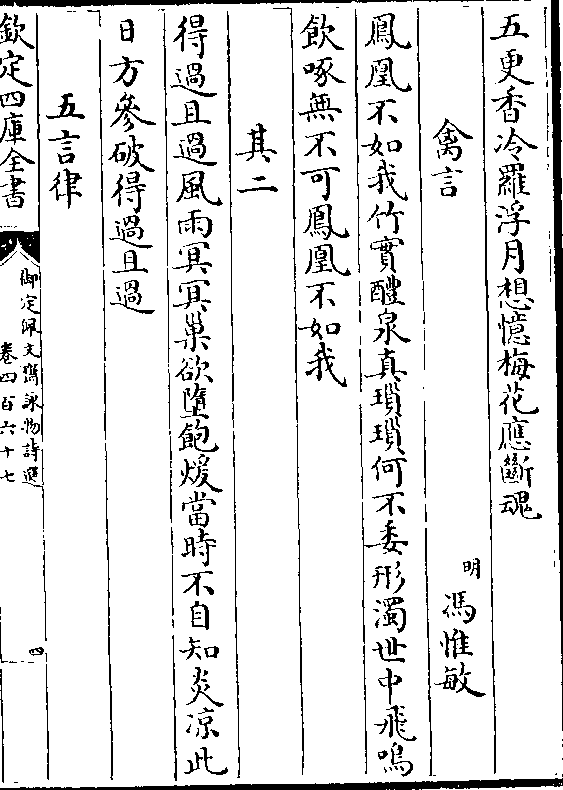 五更香冷羅浮月想憶梅花應斷魂
禽言
明 馮惟敏
鳳凰不如我竹實醴泉真瑣瑣何不委形濁世中飛鳴
飲啄無不可鳳凰不如我
其二
得過且過風雨冥冥巢欲墮飽煖當時不自知炎凉此
日方參破得過且過
五言律
欽定四庫全書
御定佩文齋詠物詩選
卷四百六十七
四